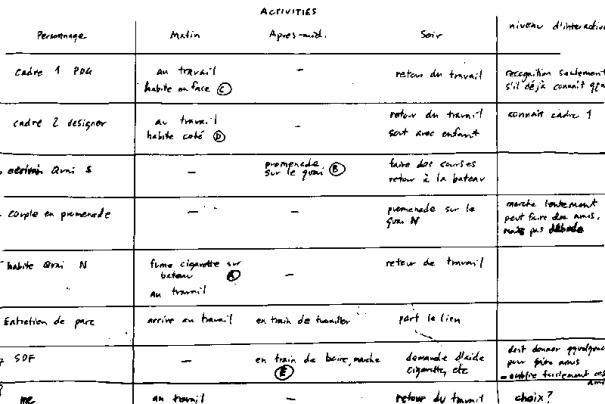 ACTIVITIES
Personnage Matin Apres-midi. Soir niveau d'interaction
cadre 1 PDG au travail — retour du travail recognition seulement
habite en face C s'il déjà connait
cadre 2 designer au travail — retour du travail connait cadre 1
habite coté D sort avec enfant
Quai S promenade faire des courses
sur le quai B retour à la bateau
couple en promenade — — promenade sur le marche lentement
quai N peut faire des amis,
mais pas
habite Quai N fume cigarette sur — retour de travail
bateau A
au travail
Entretien de parc arrive au travail en train de part le lien
SDF — en train de boire, marche demande d'aide doit donner
E cigarette, etc pour faire amis
oublie facilement
me au travail — retour du travail choix?